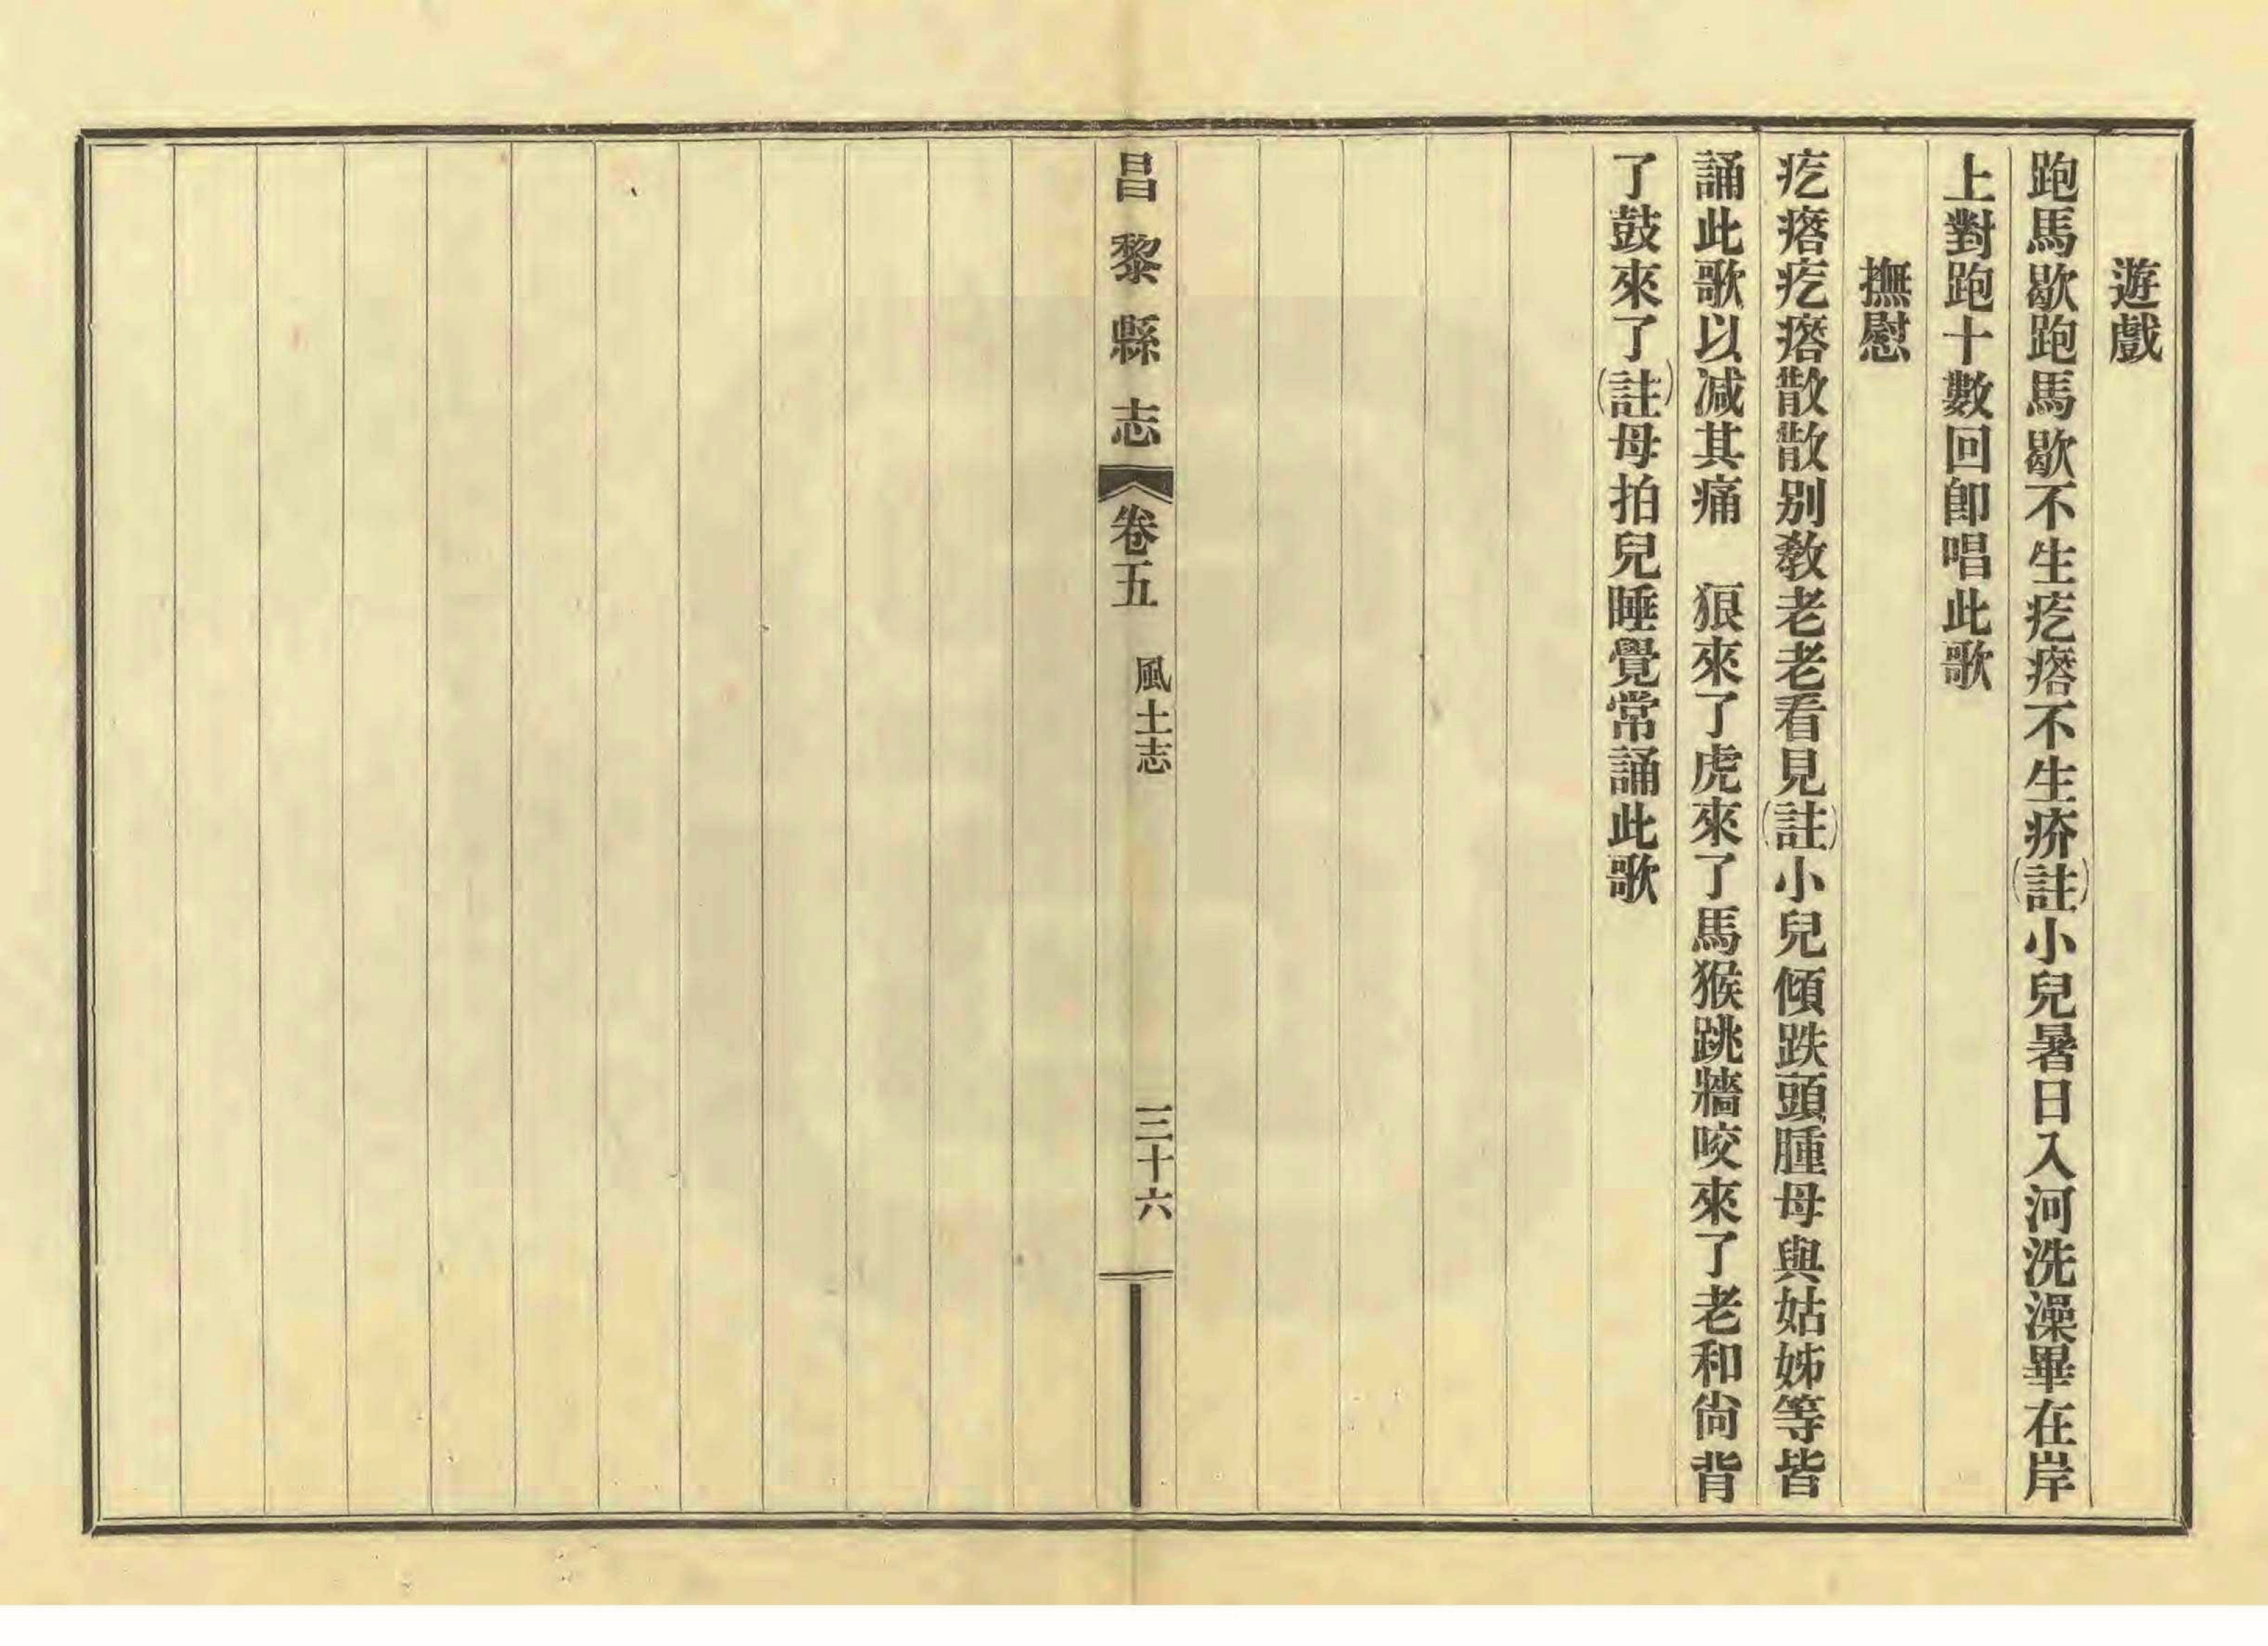 遊戲
跑馬歇跑馬歇不生疙瘩不生疥(註)小兒暑日入河洗澡畢在岸
上對跑十數回卽唱此歌
撫慰
疙瘩疙瘩散散别教老老看見(註)小兒傾跌頭腫母與姑姊等皆
誦此歌以减其痛　狠來了虎來了馬猴跳牆咬來了老和尙背
了鼓來了(註)母拍兒睡覺常誦此歌
昌黎縣志　卷五　風土志　三十六